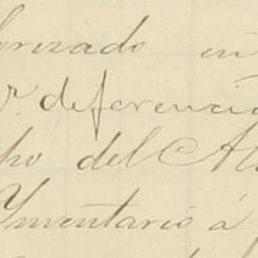 orizado en
r. diferencia
ho del At
Ymventario á